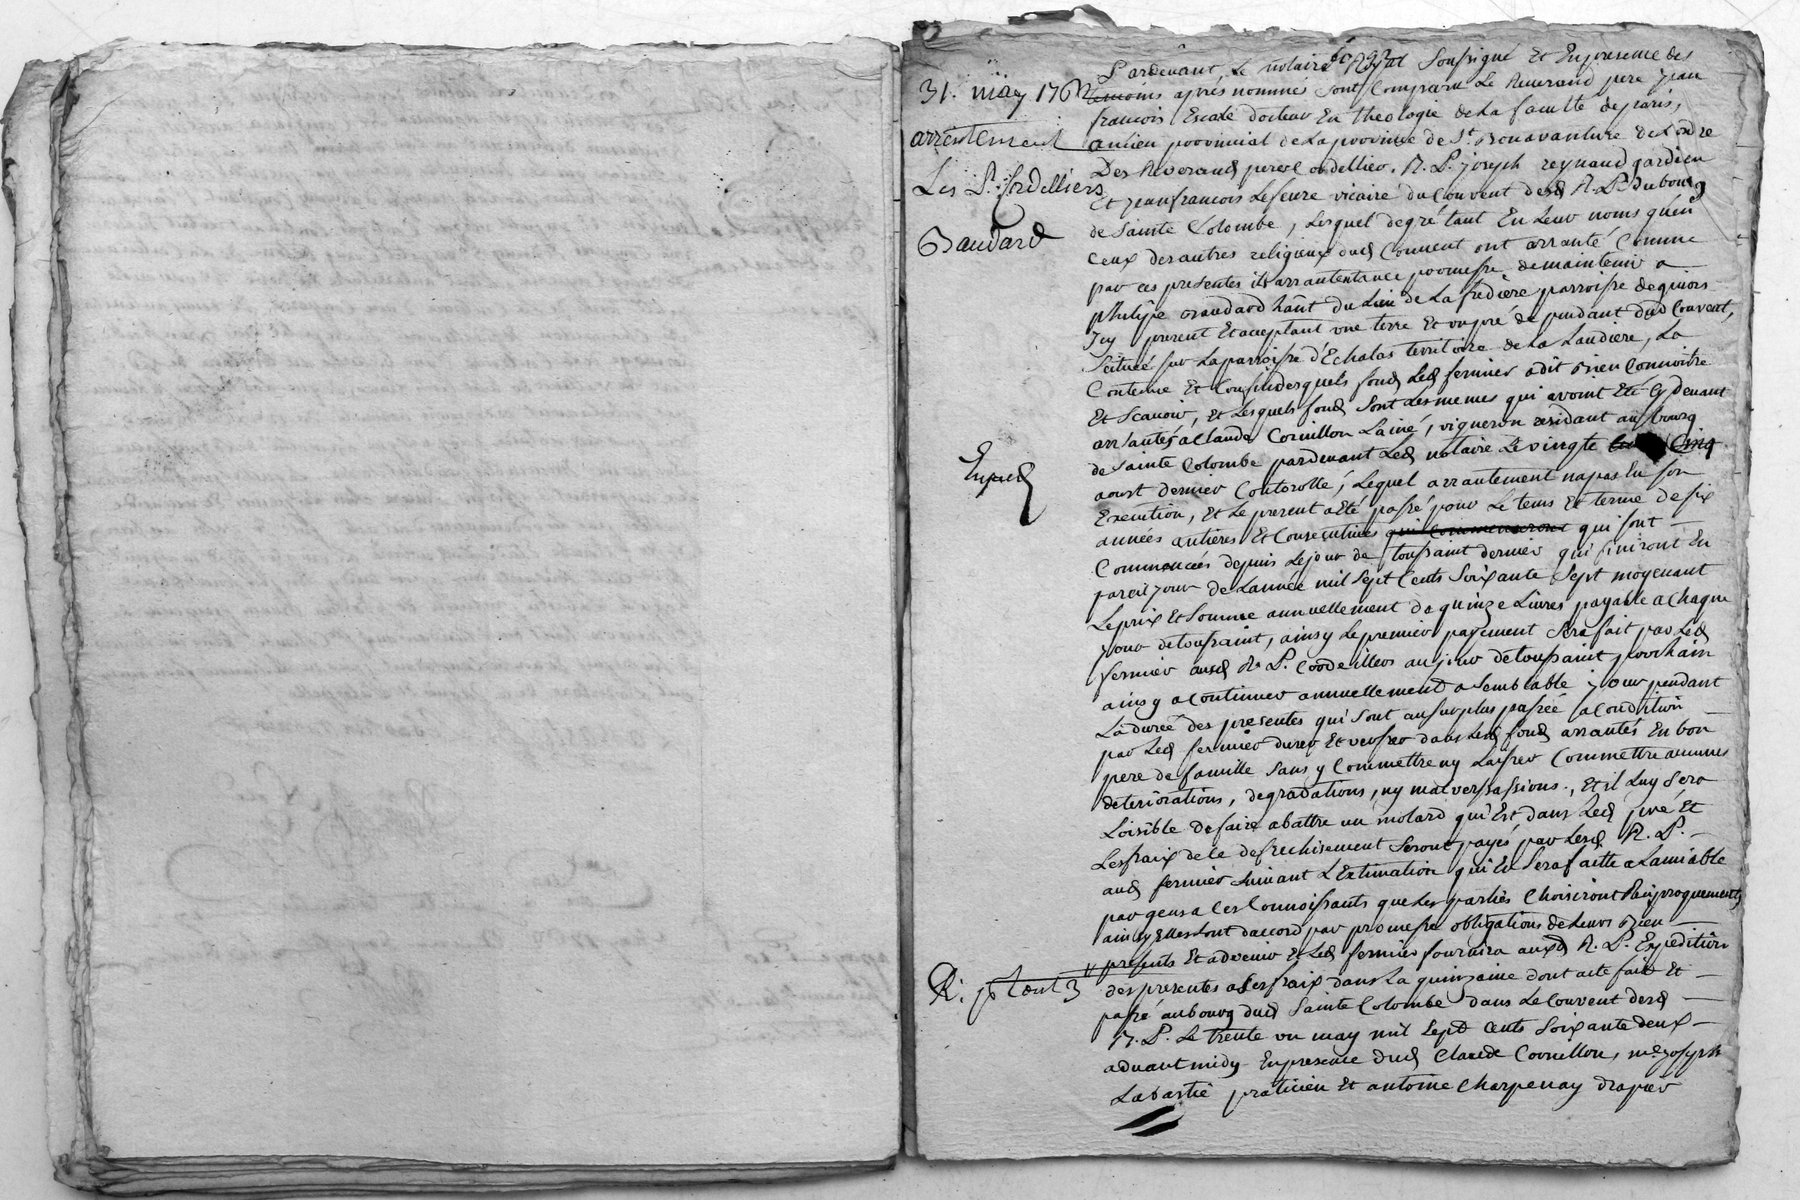 31. may 1762
arrentement
Les P. Cordelliers
a
Baudard
Expié
Pardevant Le notaire Royal Soussigné Et En presence des
temoins apres nommés Sont Comparu Le Reverand pere jean
francois Escale docteur En theologie de La faculte de paris,
antien provinvial de La province de St Bonavanture de Lordre
Des Reverands peres Cordelliers. R. P. joseph reynaud gardien
Et jean francois Lefevre vicaire du Couvent desd R. P. du bourg
de Sainte Colombe, Lesquel de gré tant En Leur noms qu'en
ceux des autres religieux dud Couvent ont arranté Comme
par ces presentes ils arrantent avec promesse de maintenir a
philipe Baudard habt du Lieu de La fredière parroisse de
Icy present Et acceptant une terre Et un pré dependant dud Couvent,
Scitué sur La parroisse d'Echalas territoire de La Laudiere, La
Contenue Et Confin desquels fond Led fermier a dit Bien Connoitre
Et Scavoir, Et Lesquels fond Sont Les memes qui avoint Eté Cy devant
arrantés a Claude Cornillon L'ainé, vigneron residant au bourg
de Sainte Colombe pardevant Led notaire Le vingte Cinq
aoust dernier Controllé, Lequel arrantement na pas Eu son
Execution, Et Le present a Eté passé pour Le tems Et terme de six
années antieres Et Consecutives qui Commenceront qui sont
Commencées depuis Le jour de toussaint dernier qui finiront En
pareil jour de L'année mil Sept Cents Soixante Sept moyenant
Le prix Et Somme annuellement de quinze Livres payable a Chaque
jour de toussaint, ainsy Le premier payement Sera fait par Led
fermier auxd R. P. Cordeilleos au jour de toussaint prochain
ainsy a Continuer annuellement a Semblable jour pendant
La durée des presentes qui Sont au surplus passée a Condition
par Led fermier d'user Et verser dans Lesd fond arrantés En bon
pere de famille Sans y Commettre ny Laisser Commettre aucunes
deteriorations, degradations, ny malversassions., Et il Luy Sera
Loisible de faire abattre un molard qui Est dans Led pré Et
Les fraix de le defrechisement Seront payés par Lesd R. P.
aud fermier Suivant L'Estimation qui En Sera faitte a L'amiable
par gens a ces Connoissants que Les parties Choisiront Reciproquements
ainsy Elles Sont d'accord par promesse obligations de Leurs Bien
presents Et advenir Et Led fermier fournira auxd R. P. Expedition
des presentes a Ses fraix dans La quinzaine dont acte fait Et
passé au bourg dud Sainte Colombe dans Le Couvent desd
R. P. Le trente un may mil Sept cents Soixante deux
advant midy En presence dud Claude Cornillon, me joseph
Labastie praticien Et antoine Charpenay drapier